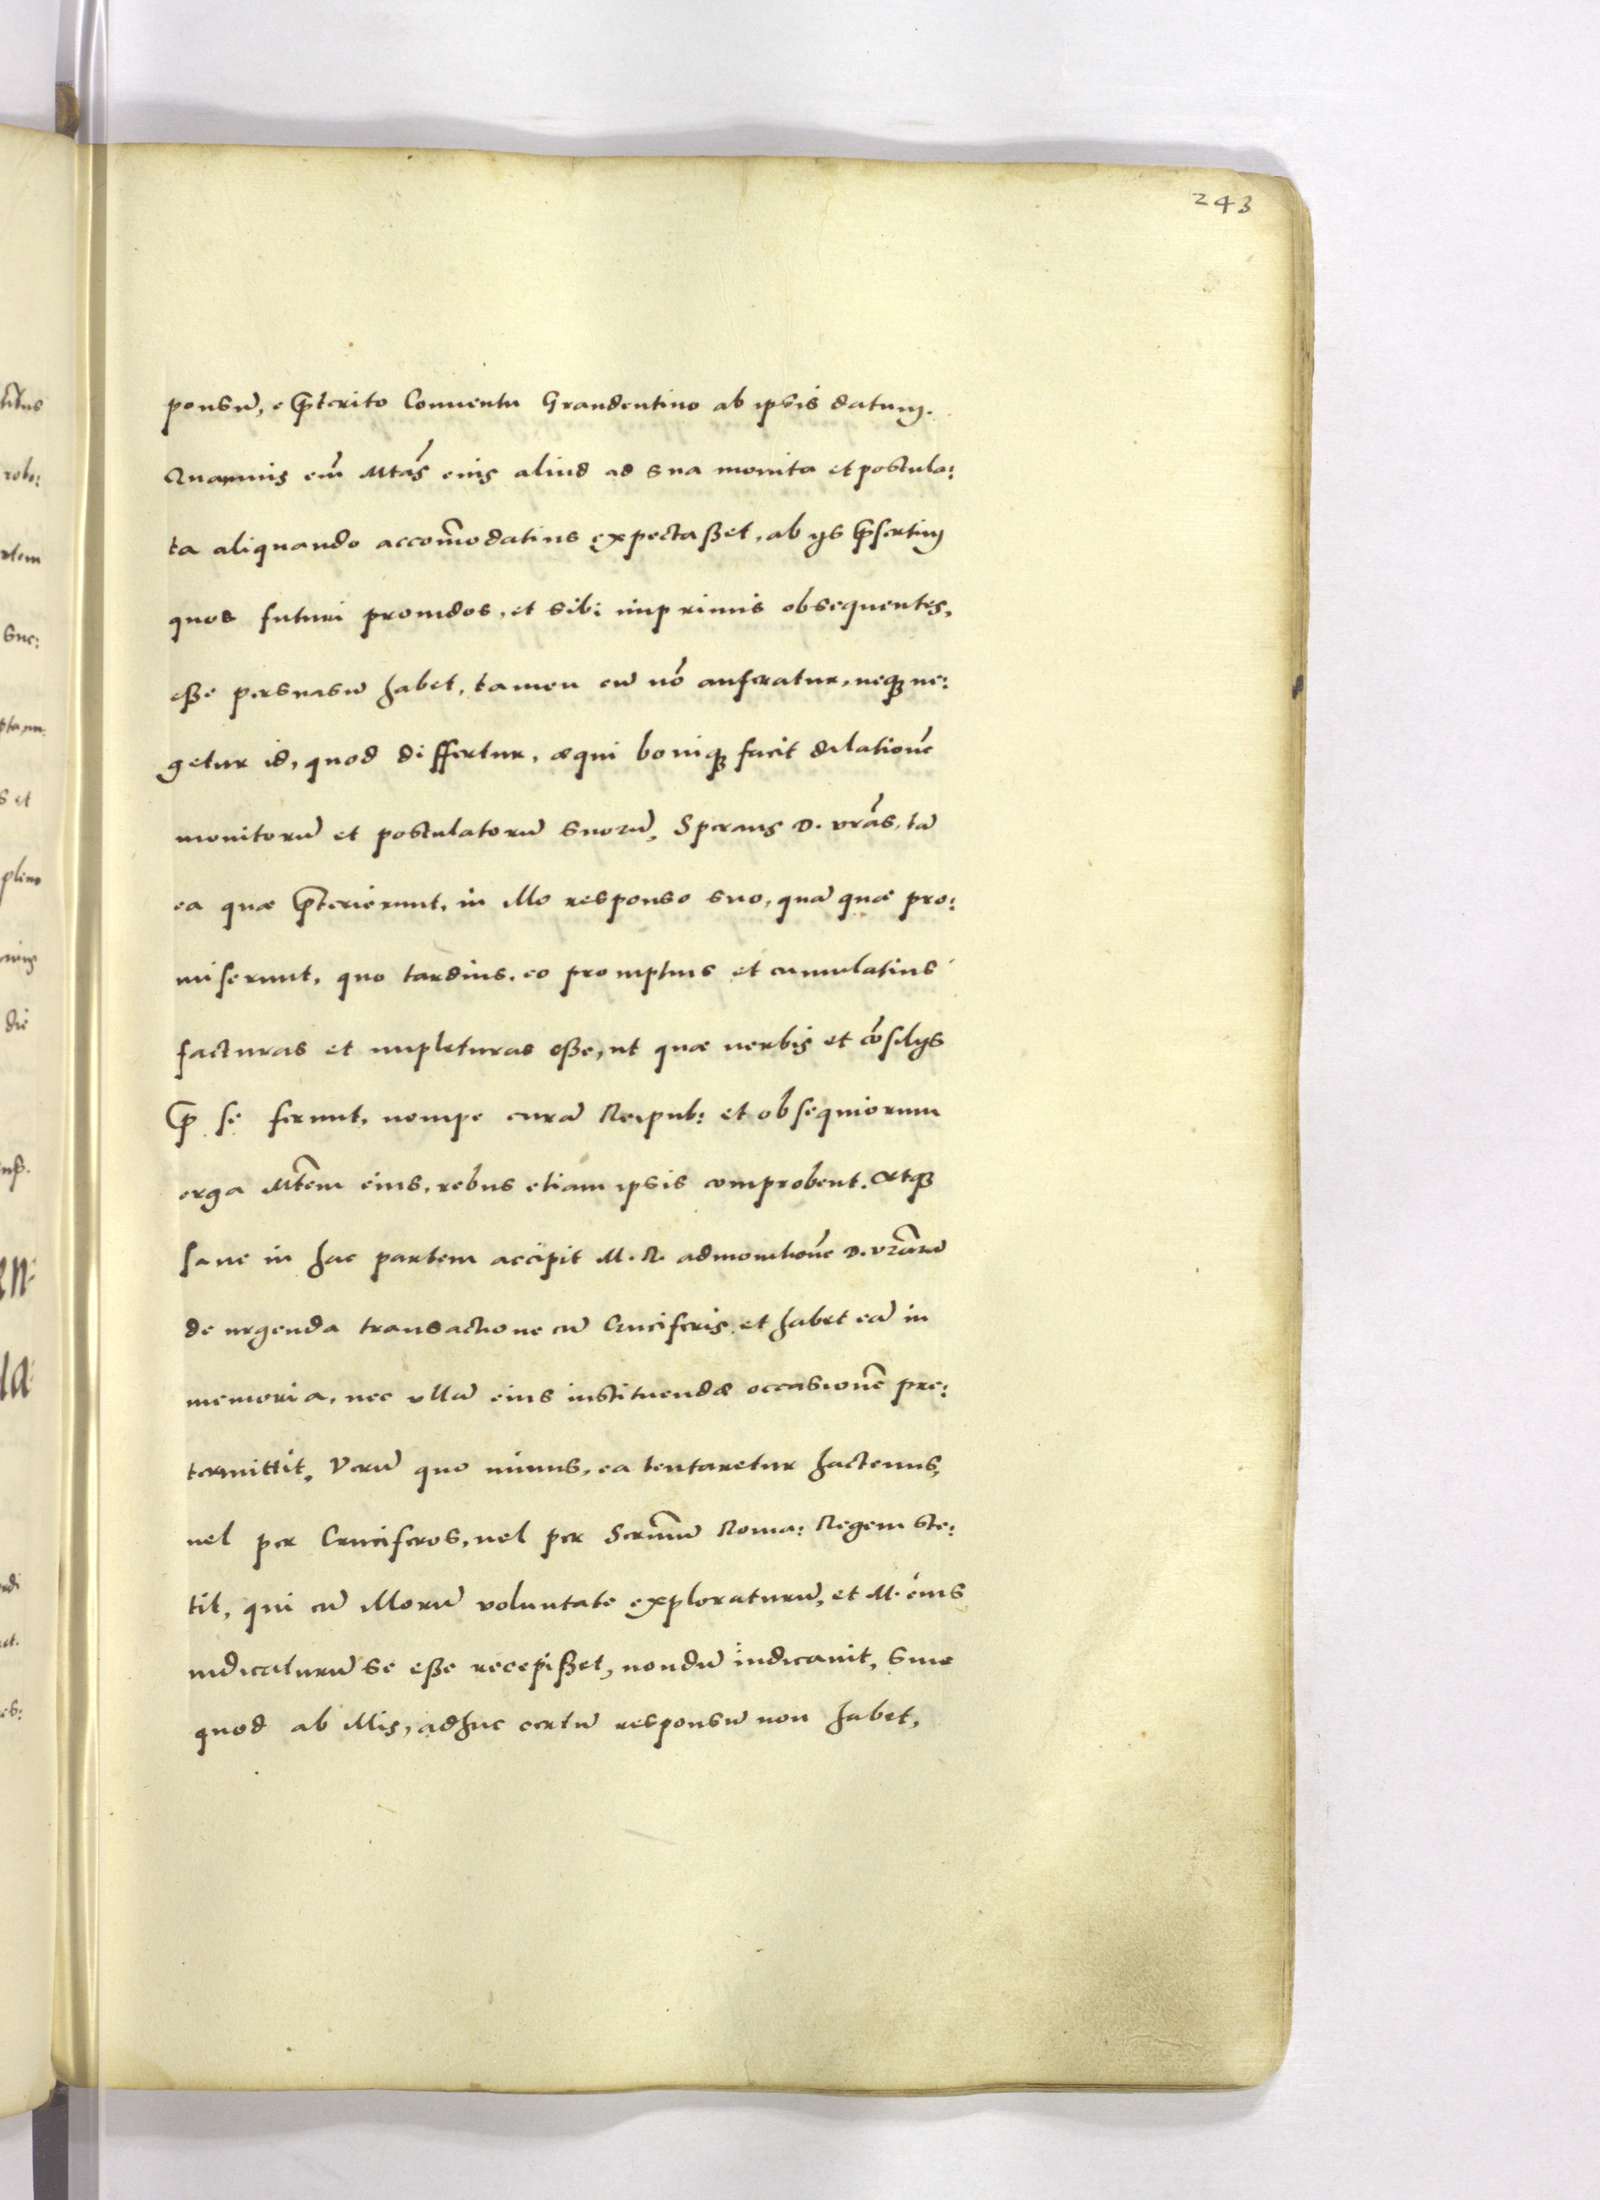 243
ponsũ, e p̃terito Conuentu Graudentino ab ipsis datum.
Quamuis em̃ Mtas̃ eius aliud ad sua monita et postula:
ta aliquando accom̃odatius expectaßet, ab ijs p̃sertim
quos futuri prouidos, et sibi imprimis obsequentes,
eße persuasũ habet, tamen cũ nõ auferatur, neq; ne:
getur id, quod differtur, æqui boniq; facit dilationẽ
monitorũ et postulatorũ suorũ, Sperans D. vrãs, tã
ea quæ p̃terierunt, in illo responso suo, quã quæ pro:
miserunt, quo tardius, eo promptius et cumulatius
facturas et impleturas eße, ut quæ uerbis et cõsilijs
p̃ se ferunt, nempe curã Reipub: et obsequiorum
erga Mtẽm eius, rebus etiam ipsis comprobent. Atq;
sane in hac partem accipit M. R. admonitionẽ D. vrãrũ
de urgenda transactione cũ Cruciferis, et habet eã in
memoria, nec ullã eius instituendæ occasionẽ pre:
termittit, Verũ quo minus, ea tentaretur hactenus,
uel per Cruciferos, uel per Serm̃ũ Roma: Regem ste:
tit, qui cũ illorũ voluntate exploraturũ, et M. eius
indicaturũ se eße recepißet, nondũ indicauit, siue
quod ab illis, adhuc certũ responsũ non habet,